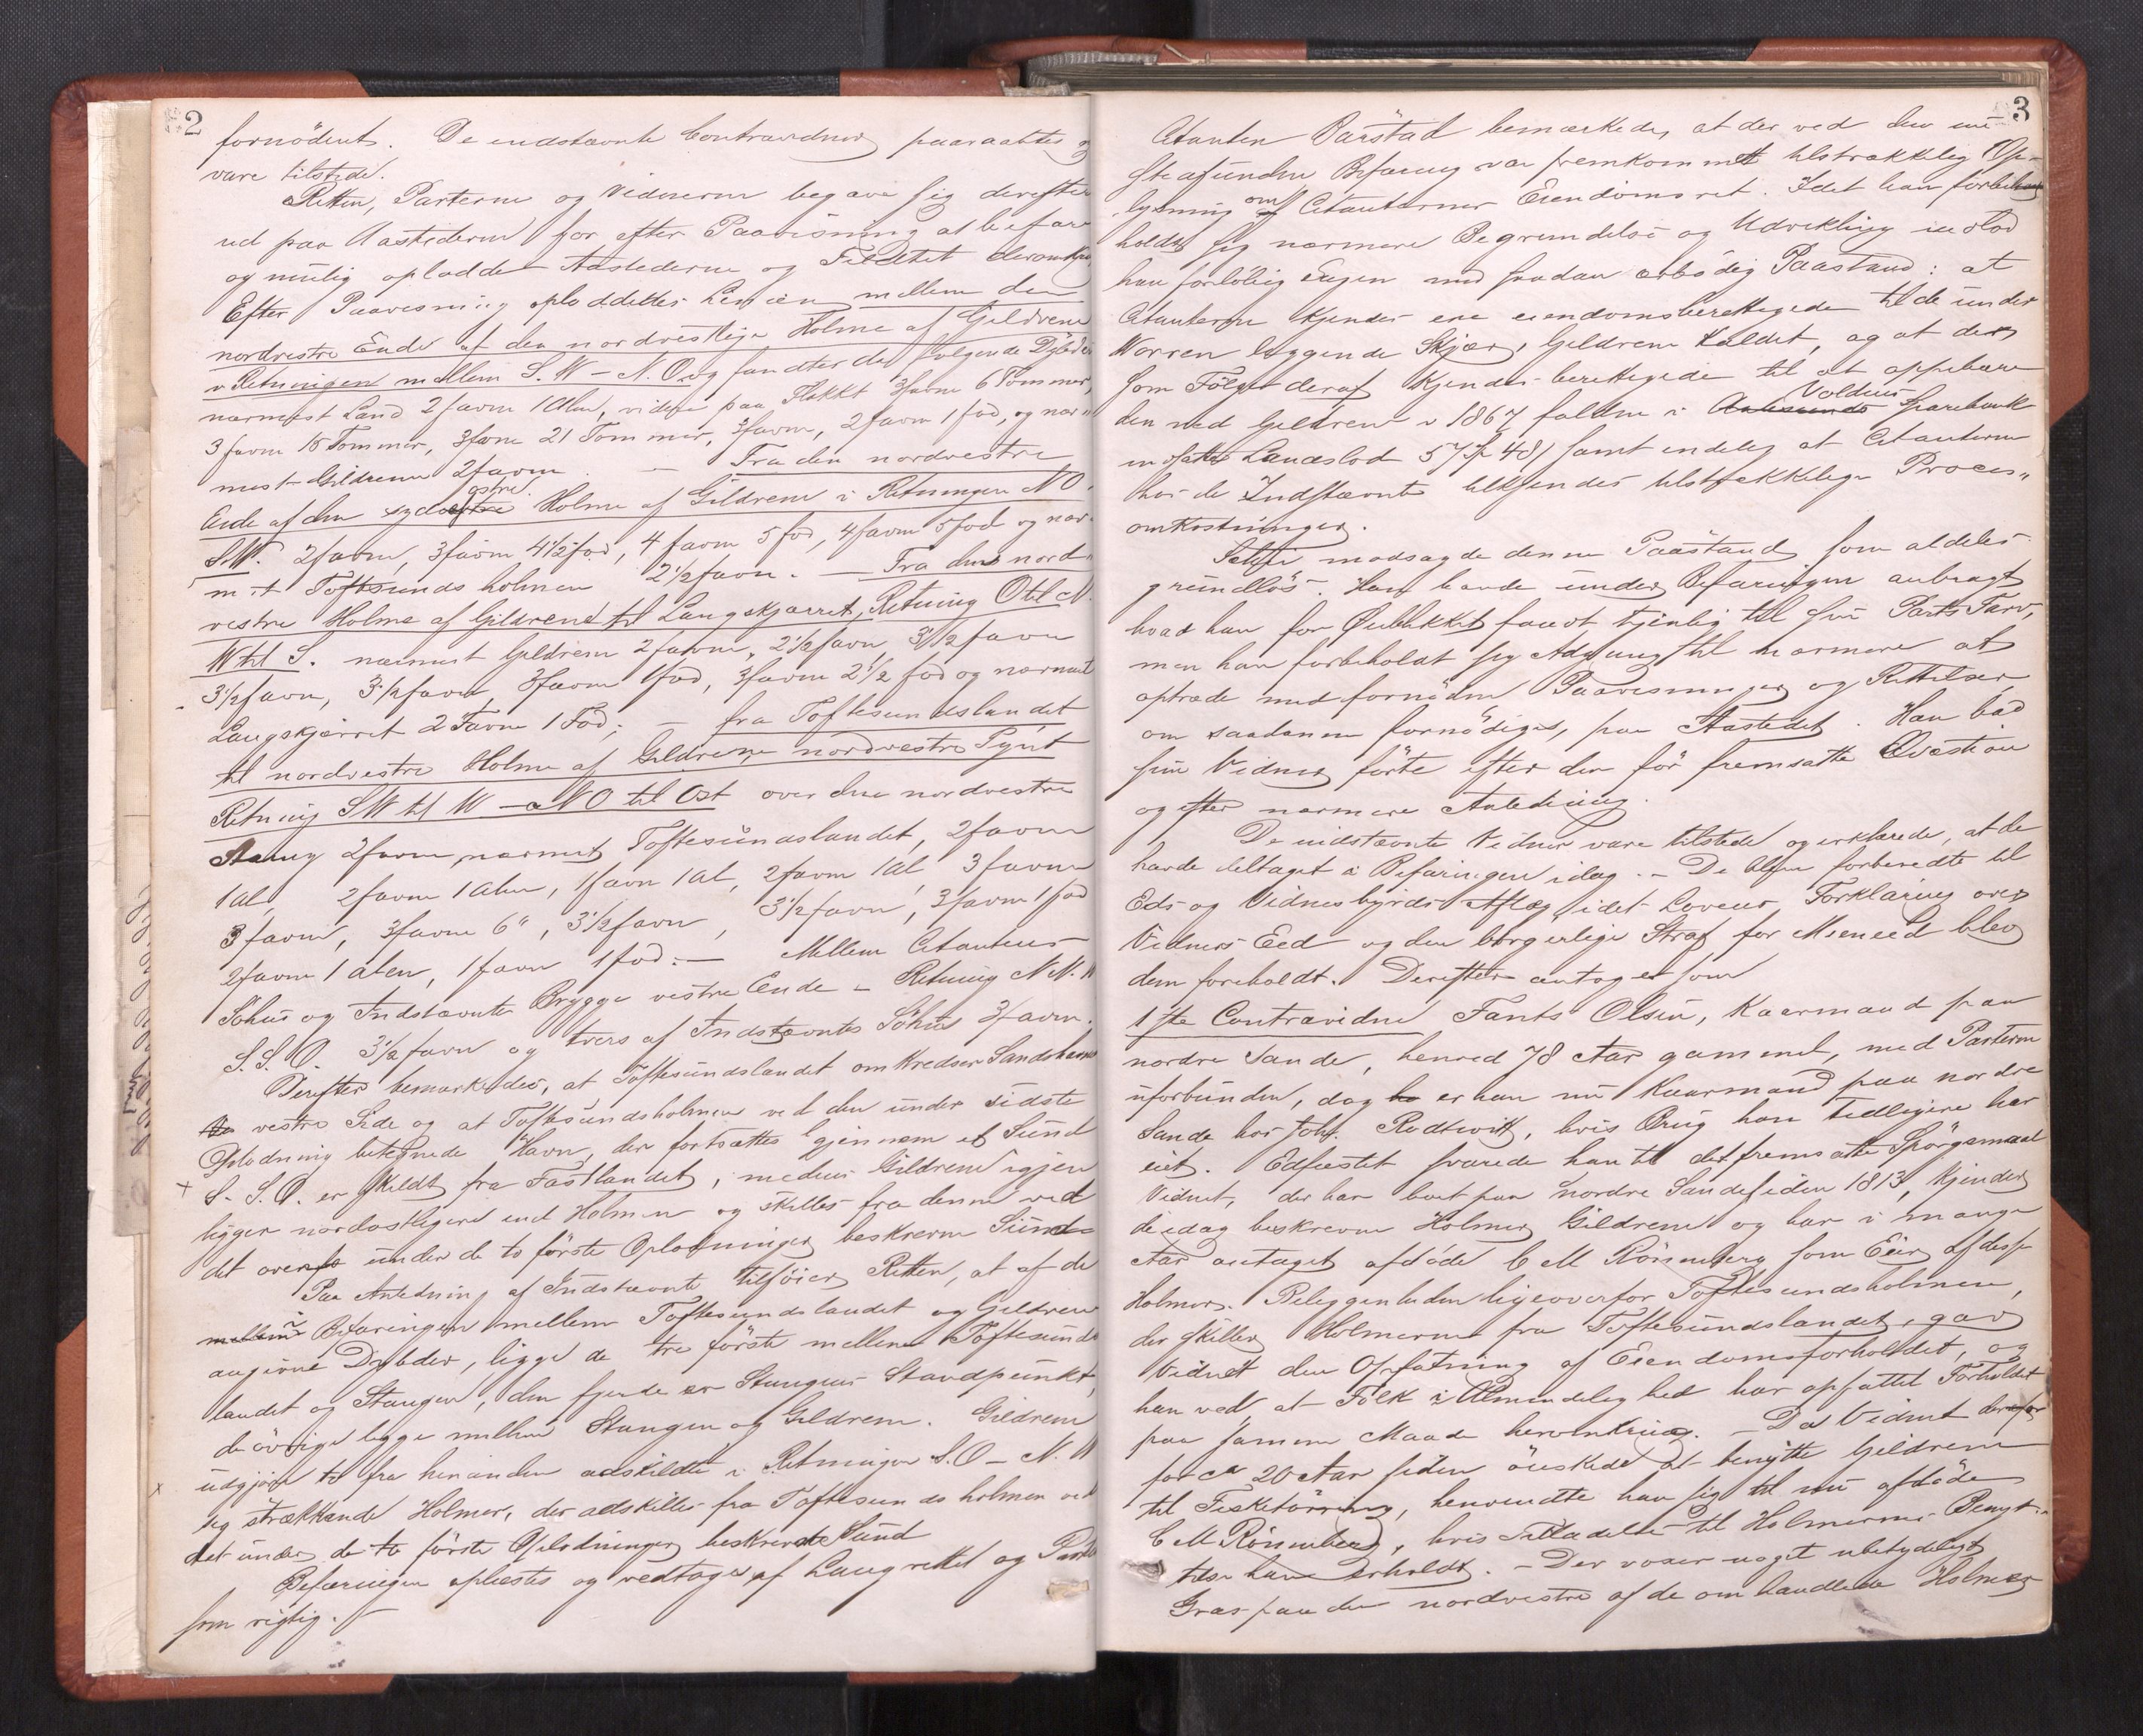 2
fornödent. De indstævnte Contravidner paaraabtes og
vare tilstede.
Retten, Parterne og Vidnerne begave sig derefter
ud paa Aastederne for efter Paavisning at befare
og mulig oplodde Aastederne og Feldtet deromkring
Efter Paavisning oploddedes Linien mellem den
nordvestre Ende af den nordvestlige Holme af Gildrene
i Retningen mellem S.W – N.O. og fandtes der følgende Dybder
nærmest Land 2 favne 1 Alen, videre paa Flekket 3 favne 6 Tommer,
3 favne 18 Tommer, 3 favne 21 Tommer, 3 favne, 2 favne 1 fod, og nær"
mest Gildrene 2 favne. — Fra den nordvestre
Ende af den sydøstre Holme af Gildrene i Retningen NO.
S.W. 2 favne, 3 favne 4 1/2 fod, 4 favne 5 fod, 4 favne 5 fod og nær-
mest Toftesundsholmen 2 1/2 favn. — Fra den nord"
vestre Holme af Gildrene til Langskjærret, Retning O til N.
W til S. nærmest Gildrene 2 favne, 2 1/2 favn, 3 1/2 favn
3 1/2 favn, 3 1/2 favn, 3 favne 1 fod, 3 favne 2 1/2 fod og nærmest
Langskjærret 2 Favne 1 Fod; — fra Toftesundslandet
til nordvestre Holme af Gildrene nordvestre Pynt
Retning SW til W – NO til Ost over den nordvestre
Stang 2 favne nærmest Toftesundslandet, 2 favne
1 al, 2 favne 1 Alen, 1 favn 1 al, 2 favne 1 al 3 favne
3 favne, 3 favne 6", 3 1/2 favn, 3 1/2 favn, 3 favne 1 fod
2 favne 1 alen, 1 favn 1 fod. — Mellem Citantens
Söhus og Indstævnte Brygge vestre Ende – Retning N.N.W
S.S.O. 3 1/2 favn og tvers af Indstævntes Söhus 3 favn.
Derefter bemærkedes, at Toftesundslandet omkredser Sandshavns
vestre Side og at Toftesundsholmen ved den under sidste
Oplodning betegnede Havn, der fortsættes gjennem et Sund
S. S.O. er skildt fra Fastlandet, medens Gildrene igjen
ligger nordostligere end Holmen og skilles fra denne ved
det under de to förste Oplodninger beskrevne Sund
Paa Anledning af Indstævnte tilföier Retten, at af de
i Befaringen mellem Toftesundslandet og Gildrene
angivne Dybder, ligge de tre förste mellem Toftesunds
landet og Stangen, den fjerde er Stangens Standpunkt,
de övrige ligge mellem Stangen og Gildrene. Gildrene
udgjöre to fra hinanden adskildte i Retningen S.O – N.W
sig strækkende Holmer, der adskilles fra Toftesundsholmen ved
det under de to förste Oplodninger beskrevne Sund
Befaringen oplæstes og vedtoges af Laugrettet og Parterne
som rigtig.
3
Citanten Barstad bemærkede, at der ved den nu
stedfundne Befaring var fremkommet tilstrækkelig Op-
lysning om Citanternes Eiendomsret. Idet han forbe-
holdt sig nærmere Begrundelse og Udvikling indlod
han forlöbig Sagen med saadan ærbödig Paastand: at
Citanterne kjendes ene eiendomsberettigede til de under
Worren liggende Skjær, Gildrene kaldet, og at de
som Fölge deraf kjendes berettigede til at oppebære
den ved Gildrene i 1867 faldne i Voldens Sparebank
indsatte Landslod 57 Sp 48 s samt endelig at Citanterne
hos de Indstævnte tilkjendes tilstrækkelige Proces"
omkostninger.
modsagde denne Paastand som aldeles
grundlös. Han havde under Befaringen anbragt
hvad han for Öieblikket fandt tjenlig til sin Parts Tarv,
men han forbeholdt sig Adgang til nærmere at
optræde med fornödne Paavisninger og Rettelser,
om saadanne fornödiges, paa Aastedet. Han bad
sine Vidner förte efter den för fremsatte Qvæstion
og efter nærmere Anledning.
De indstævnte Vidner vare tilstede og erklærede, at de
havde deltaget i Befaringen idag. – De blev forberedte til
Eds og Vidnesbyrds Aflæg, idet Lovens Forklaring over
Vidners Eed og den borgerlige Straf for Meeneed blev
dem foreholdt. Derefter antoges som
1ste Contravidne Fants Olsen, Kaarmand paa
nordre Sande, henved 78 Aar gammel, med Parterne
uforbunden, dog er han nu Kaarmand paa nordre
Sande hos Joh. Rodtwitt, hvis Brug han tidligere har
eiet. Edfæstet svarede han til det fremsatte Spörgsmaal
Vidnet, der har boet paa nordre Sande siden 1813, kjender
de idag beskrevne Holmer Gildrene og har i mange
Aar antaget afdöde C M Rönneberg som Eier af disse
Holmer. Beliggenheden ligeoverfor Toftesundsholmen,
der skiller Holmerne fra Toftesundslandet, gav
Vidnet den Opfatning af Eiendomsforholdet, og
han ved, at Folk i Almindelighed har opfattet Forholdet
paa samme Maade heromkring. – Da Vidnet derfor
for ca 20 Aar siden önskede at benytte Gildrene
til Fisketörring, henvendte han sig til nu afdöde
C M Rönneberg, hvis Tilladelse til Holmernes Benyt-
telse han erholdt. – Der voxer noget ubetydeligt
Græs paa den nordvestre af de omhandlede Holmer